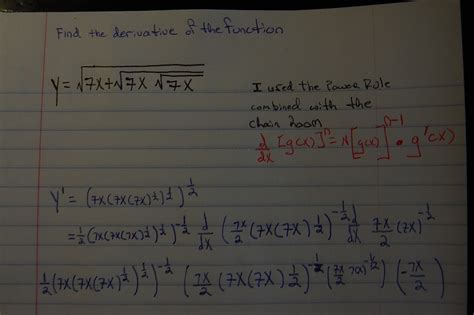 Find the derivative of the function
y = √(7x+√(7x √(7x)))
I used the Power Rule
combined with the
chain Room
d/dx [g(x)]^n = N[g(x)]^(n-1) • g'(x)
y' = (7x(7x(7x)^½)^½)^½
= ½(7x(7x(7x)^½)^½)^-½ d/dx (7x/2 (7x(7x)½)^-½ d/dx 7x/2 (7x)^-½
½(7x(7x(7x)^½)^½)^-½ (7x/2 (7x(7x)½)^-½ (7x/2 7x)^-½) (-7x/2)